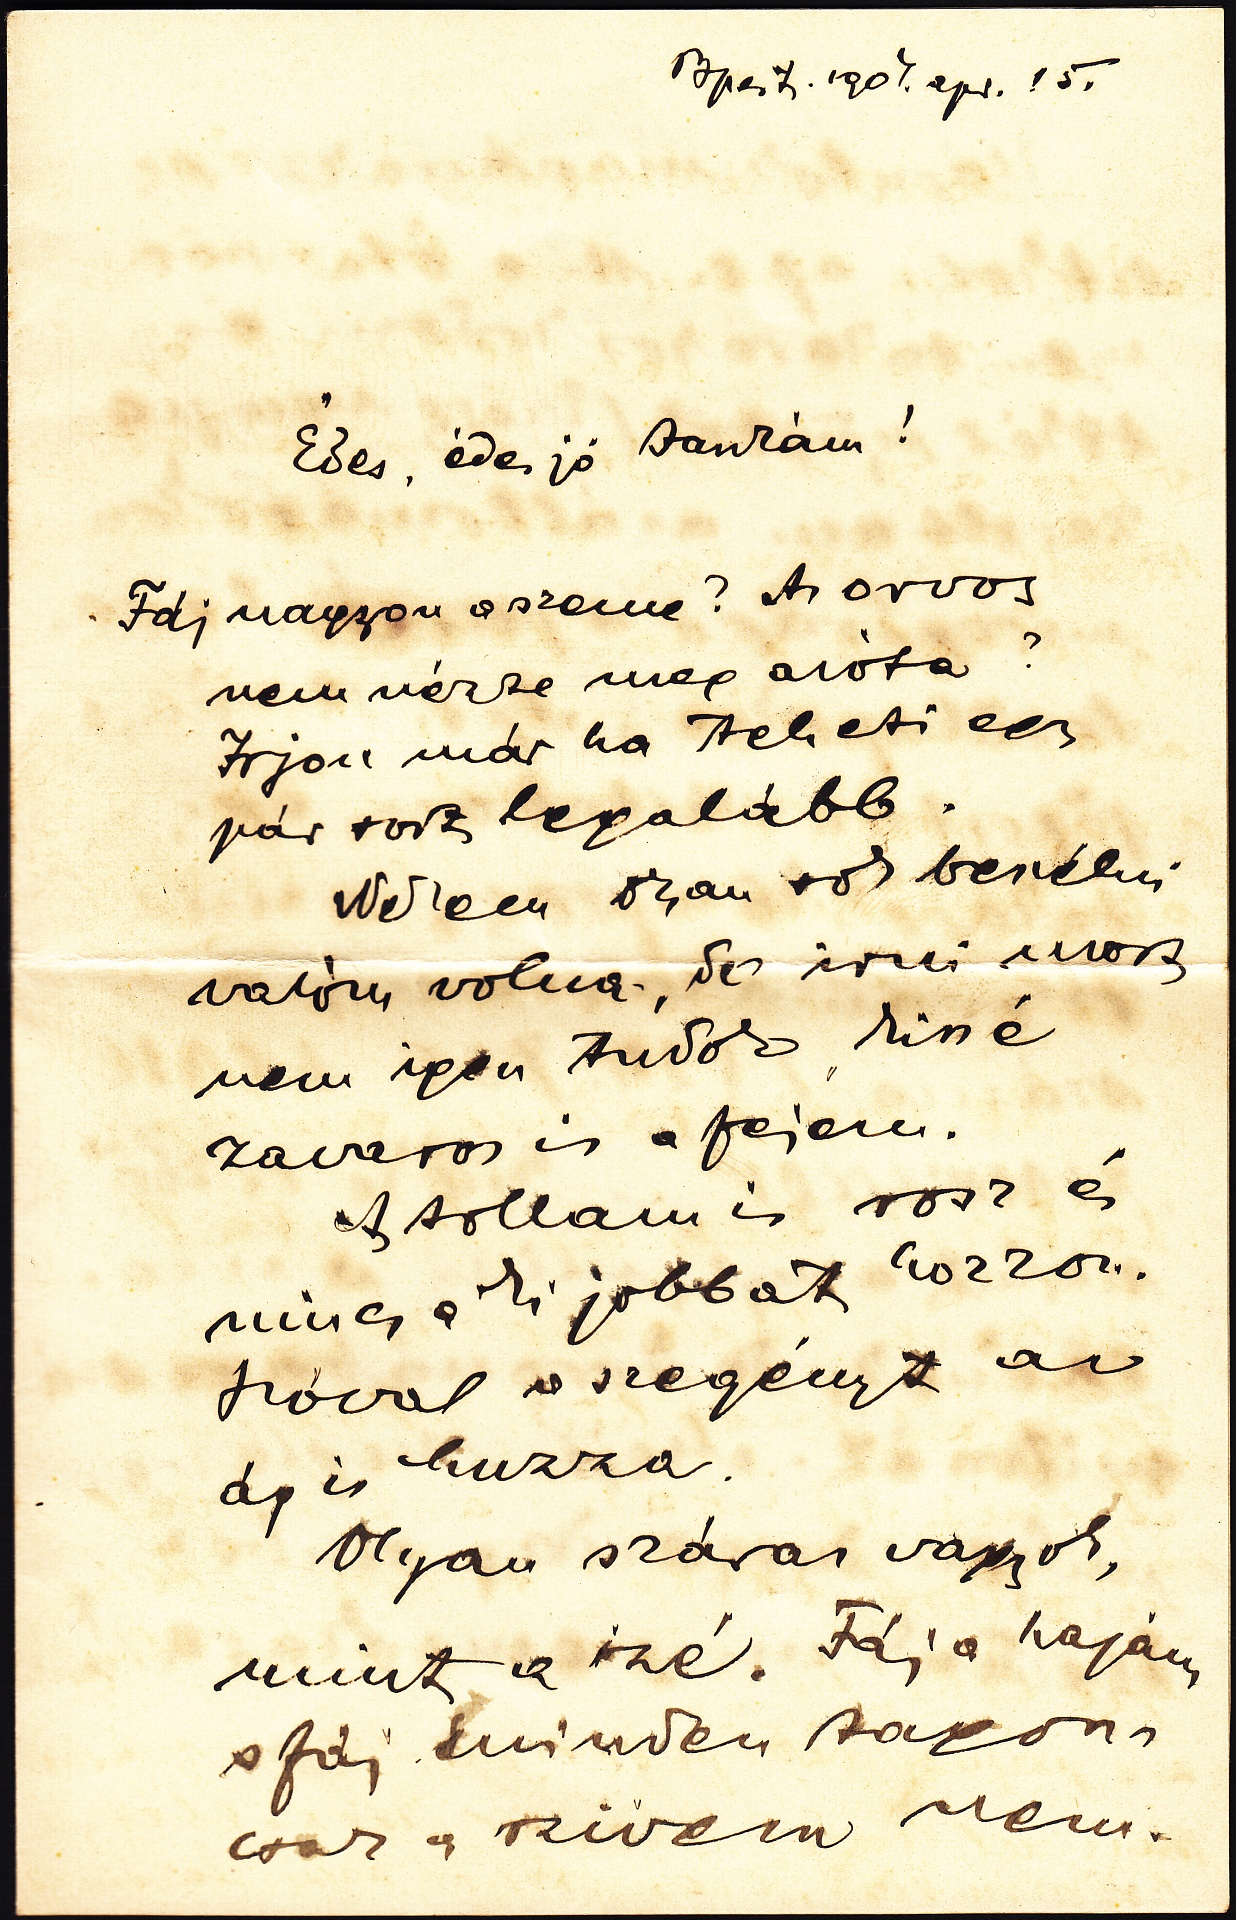 Bpest. 1907. apr. 15.
Édes, édes jó tanárám!
Fáj nagyon a szeme? Az orvos
nem nézte meg azóta?
Irjon már ha teheti egy
pár sort legalább.
Nekem olyan sok beszélni
valóm volna, de irni most
nem igen tudok, kissé
zavaros is a fejem.
A tollam is rosz és
nincs a ki jobbat hozzon.
Szóval a szegényt az
ág is huzza.
Olyan száraz vagyok,
mint a izé. Fáj a hajam,
s fáj minden tagom
csak a szivem nem.